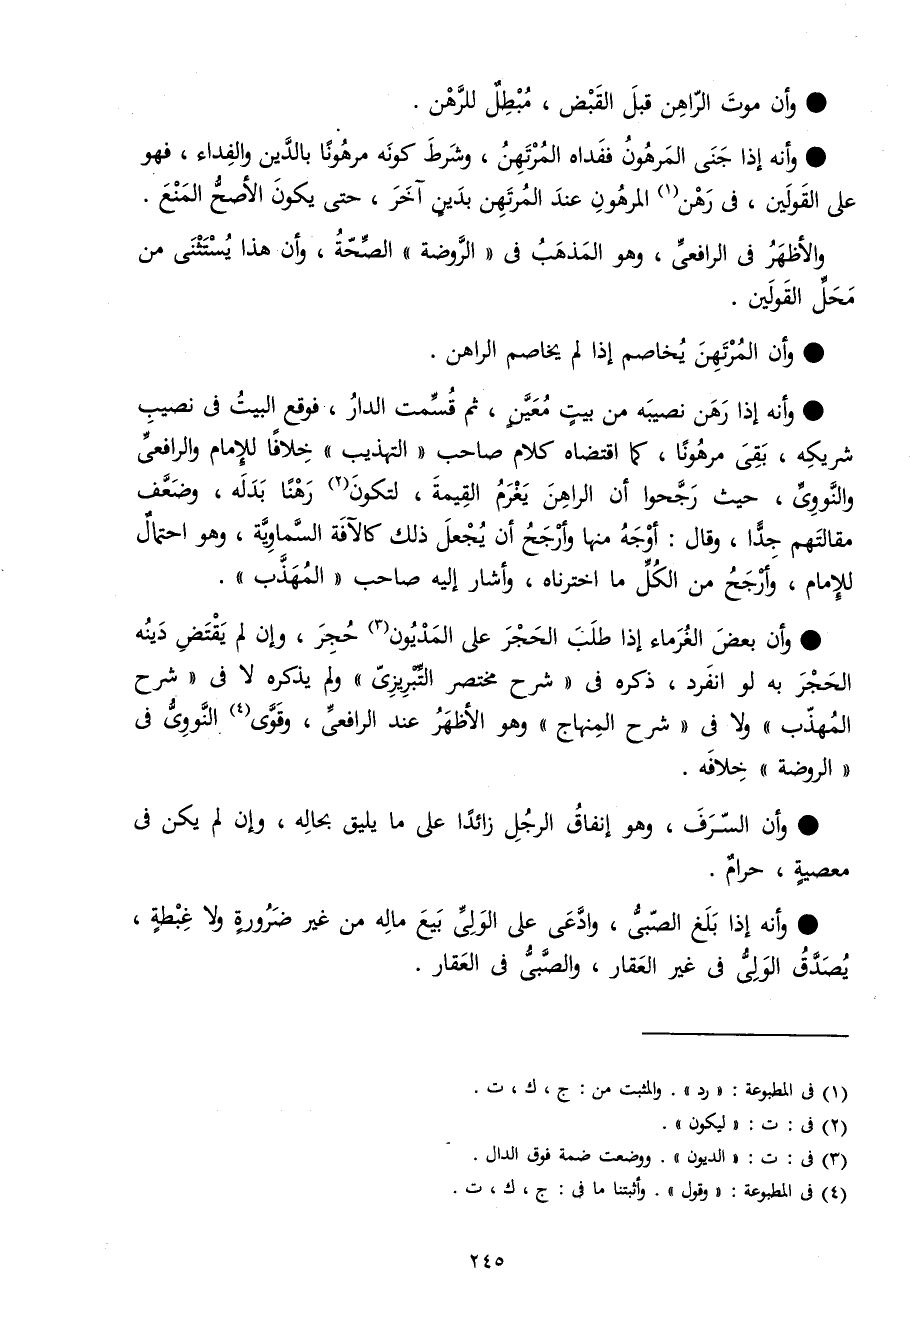 ● وأن موتَ الرّاهِن قبلَ القَبْض ، مُبْطِلٌ للرَّهْن .
● وأنه إذا جَنَى المَرهُونُ ففَداه المُرْتَهِنُ ، وشَرطَ كونَه مرهُونًا بالدَّين والفِداء ، فهو
على القَولَين ، فى رَهْن(١) المرهُونِ عندَ المُرتَهِن بدَينٍ آخَرَ ، حتى يكونَ الأصحُّ المَنْعَ .
والأظهَرُ فى الرافعىِّ ، وهو المَذهَبُ فى « الرَّوضة » الصِّحّةُ ، وأن هذا يُسْتَثْنَى من
مَحَلِّ القَولَين .
● وأن المُرْتَهِنَ يُخاصم إذا لم يخاصم الراهن .
● وأنه إذا رَهَن نصيبَه من بيتٍ مُعَيَّنٍ ، ثم قُسِّمت الدارُ ، فوقع البيتُ فى نصيبِ
شريكِه ، بَقِىَ مرهُونًا ، كما اقتضاه كلام صاحب « التهذيب » خِلافًا للإمام والرافعىِّ
والنَّووِىِّ ، حيث رَجَّحوا أن الراهِنَ يَغْرَمُ القِيمةَ ، لتكونَ(٢) رَهْنًا بَدَلَه ، وضَعَّف
مقالتَهم جِدًّا ، وقال : أوْجَهُ منها وأرْجَحُ أن يُجْعلَ ذلك كالآفَة السَّماوِيَّة ، وهو احتمالٌ
للإمام ، وأرْجَحُ من الكُلِّ ما اخترناه ، وأشار إليه صاحب « المُهَذَّب » .
● وأن بعضَ الغُرَماء إذا طلَبَ الحَجْرَ على المَدْيُون(٣) حُجِرَ ، وإن لم يَقْتَضِ دَينُه
الحَجْرَ به لو انفَرد ، ذكره فى « شرح مختصر التِّبْرِيزىّ » ولم يذكره لا فى « شرح
المُهذّب » ولا فى « شرح المِنهاج » وهو الأظهَرُ عند الرافعىِّ ، وقَوَّى(٤) النَّووِىُّ فى
« الروضة » خِلافَه .
● وأن السّرَفَ ، وهو إنفاقُ الرجُلِ زائدًا على ما يليق بحالِه ، وإن لم يكن فى
معصيةٍ ، حرامٌ .
● وأنه إذا بَلَغ الصّبىُّ ، وادَّعَى على الوَلِىِّ بَيعَ مالِه من غير ضَرُورةٍ ولا غِبْطةٍ ،
يُصَدَّقُ الوَلِىُّ فى غير العَقار ، والصَّبىُّ فى العَقار .
(١) فى المطبوعة : « رد » . والمثبت من : ج ، ك ، ت .
(٢) فى : ت : « ليكون » .
(٣) فى : ت : « الديون » . ووضعت ضمة فوق الدال .
(٤) فى المطبوعة : « وقول » . وأثبتنا ما فى : ج ، ك ، ت .
٢٤٥